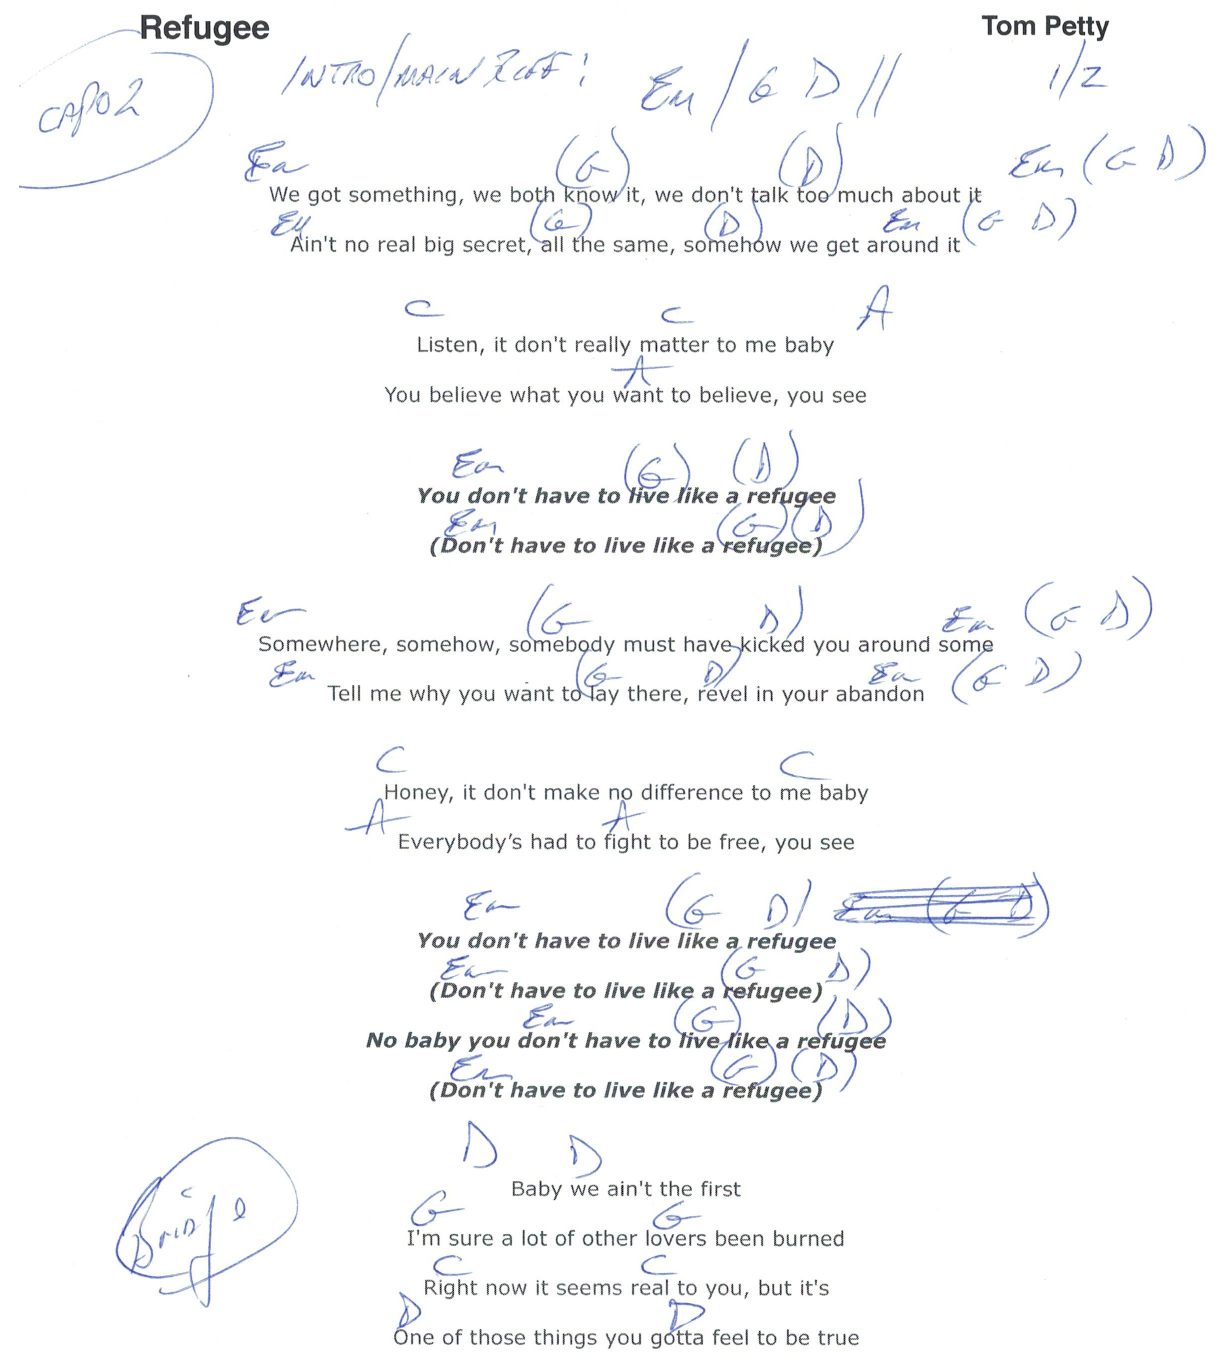 Refugee Tom Petty
CAPO2 INTRO/MAIN RIFF: Em / G D // 1/2
Em (G) (D) Em (G D)
We got something, we both know it, we don't talk too much about it
Em (G) (D) Em (G D)
Ain't no real big secret, all the same, somehow we get around it
C C A
Listen, it don't really matter to me baby
A
You believe what you want to believe, you see
Em (G) (D)
You don't have to live like a refugee
Em (G) (D)
(Don't have to live like a refugee)
Em (G D) Em (G D)
Somewhere, somehow, somebody must have kicked you around some
Em (G D) Em (G D)
Tell me why you want to lay there, revel in your abandon
C C
Honey, it don't make no difference to me baby
A A
Everybody's had to fight to be free, you see
Em (G D) Em (G D)
You don't have to live like a refugee
Em (G D)
(Don't have to live like a refugee)
Em (G) (D)
No baby you don't have to live like a refugee
Em (G) (D)
(Don't have to live like a refugee)
D D
Bridge
Baby we ain't the first
G G
I'm sure a lot of other lovers been burned
C C
Right now it seems real to you, but it's
D D
One of those things you gotta feel to be true